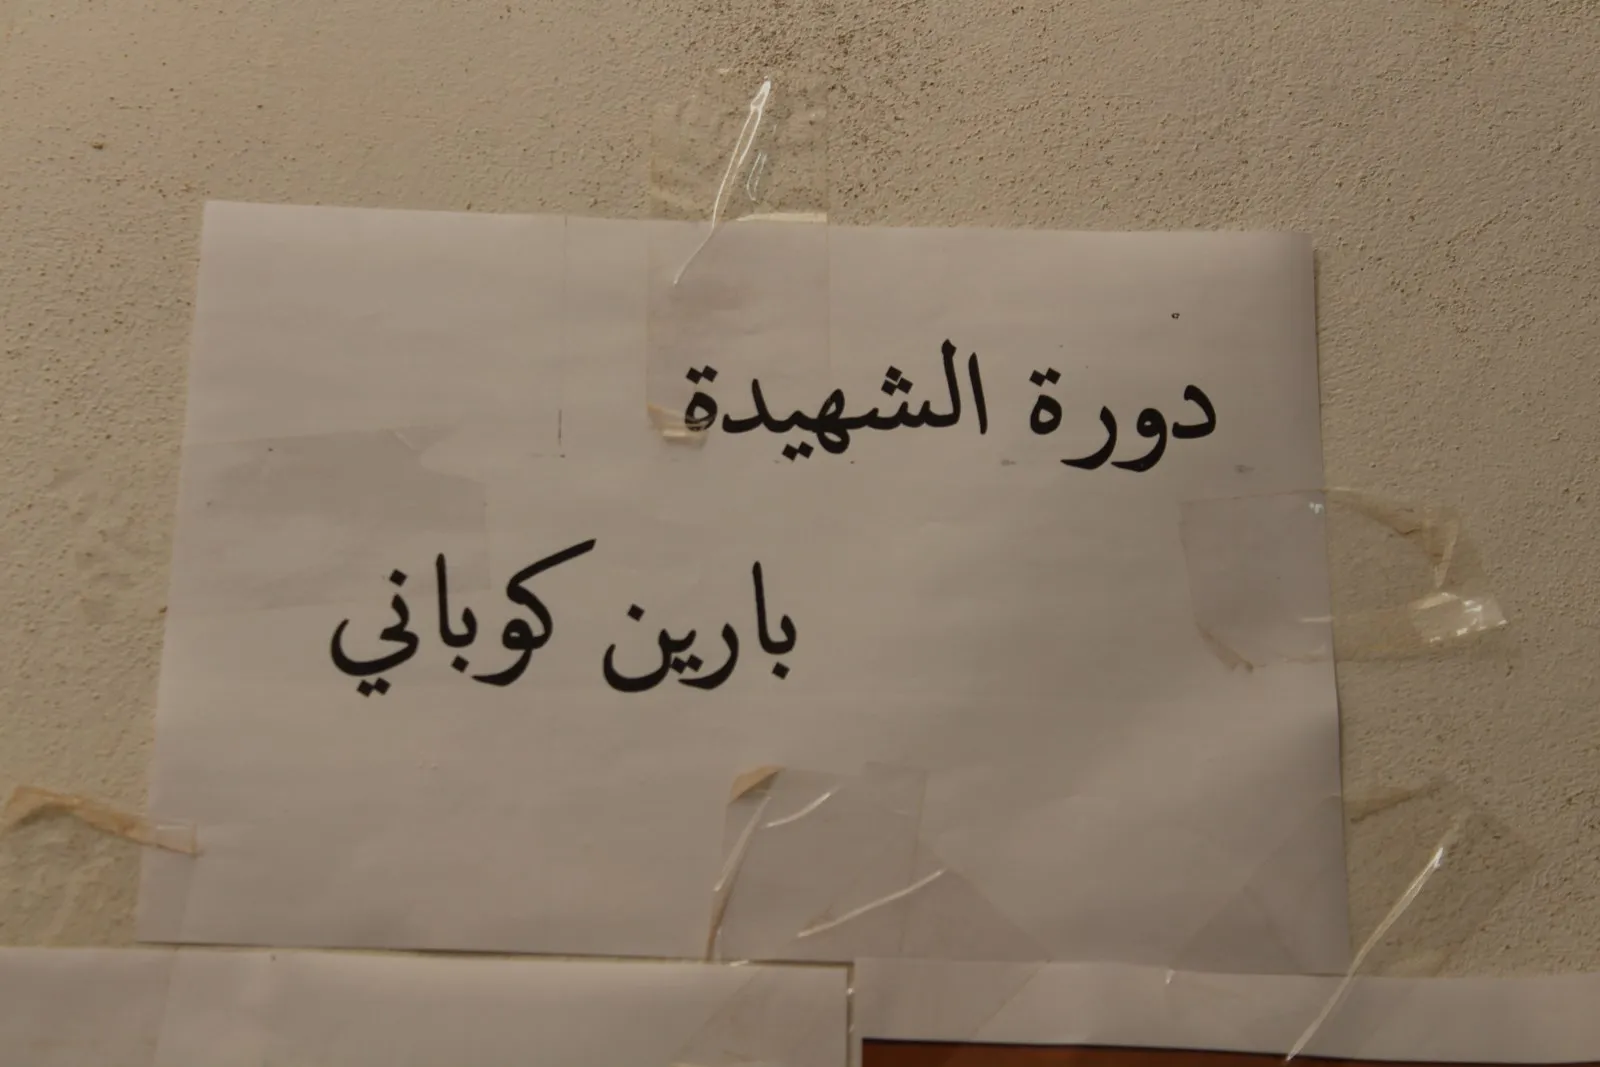 دورة الشهيدة
بارين كوباني